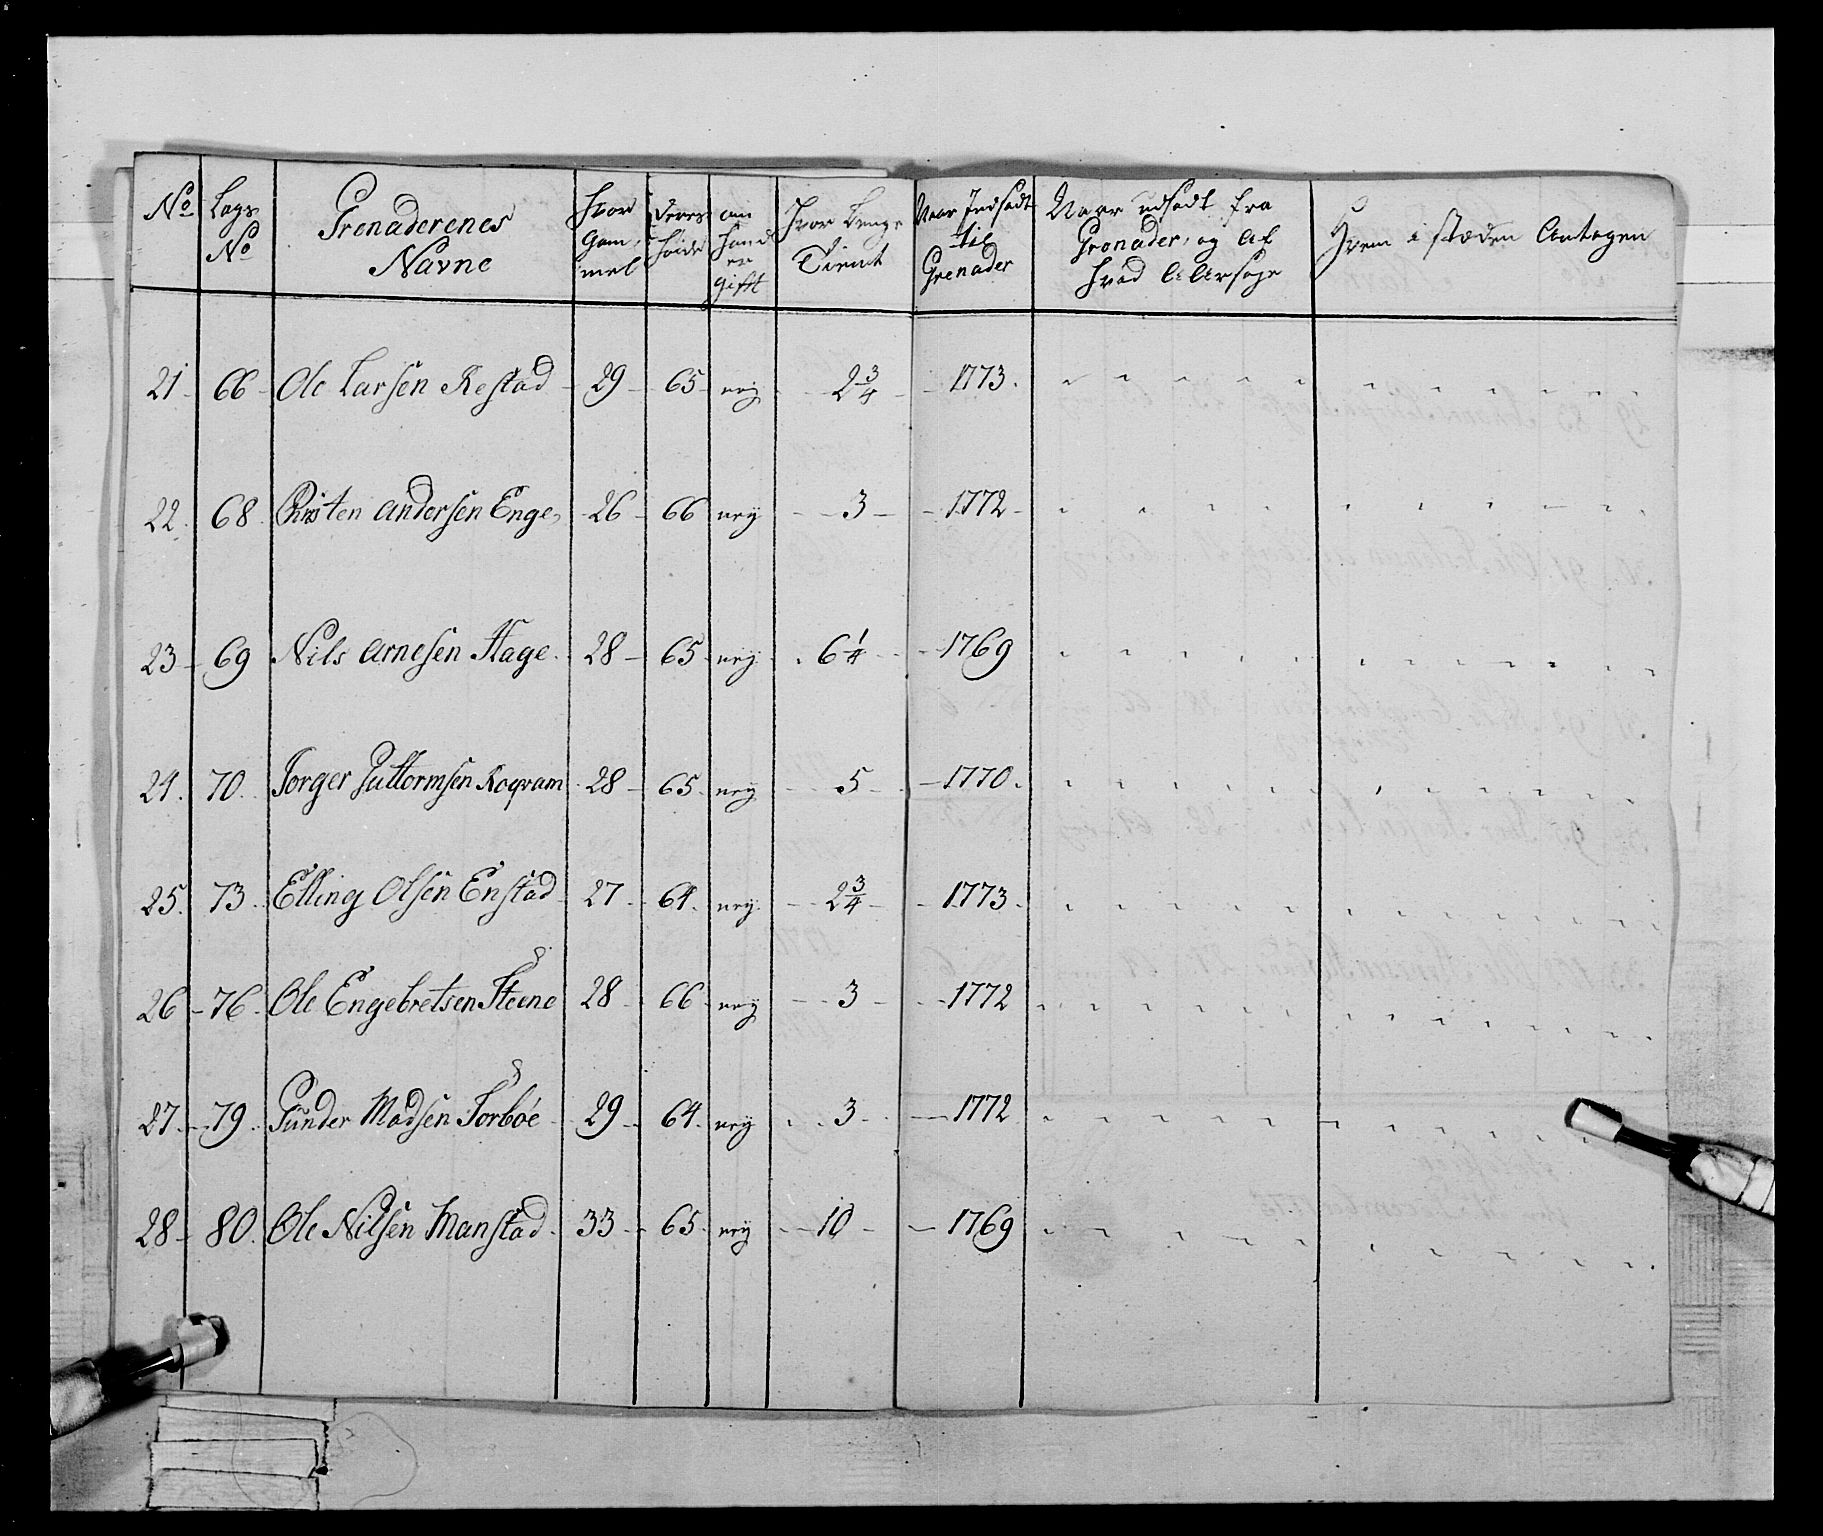 No
Lags No
Grenaderenes Navne
Hvor Gam, mel
Deres Høide
om Hand er gifft
Hvor Lenge Tient
Naar Indsadt til Grenader
Naar udsadt fra Grenader, og Af hvad Aarsage
Hvem i stæden Antagen
21 66 Ole Larsen Restad 29 65 neÿ 2 3/4 1773.
22. 68 Christen Andersen Enge, 26 66 neÿ 3 1772
23 69 Nils Arnesen Hage 28 65 neÿ 6 1/4 1769
24. 70. Torger Guttormsen Roqvam 28 65. neÿ 5 1770.
25. 73. Elling Olsen Enstad 27 64. neÿ 2 3/4 1773.
26 76. Ole Engebretsen Steene 28 66 neÿ 3 1772
27. 79. Gunder Madsen Torboe 29 64. neÿ 3 1772
28 80. Ole Nilsen Manstad 33 65. neÿ 10 1769